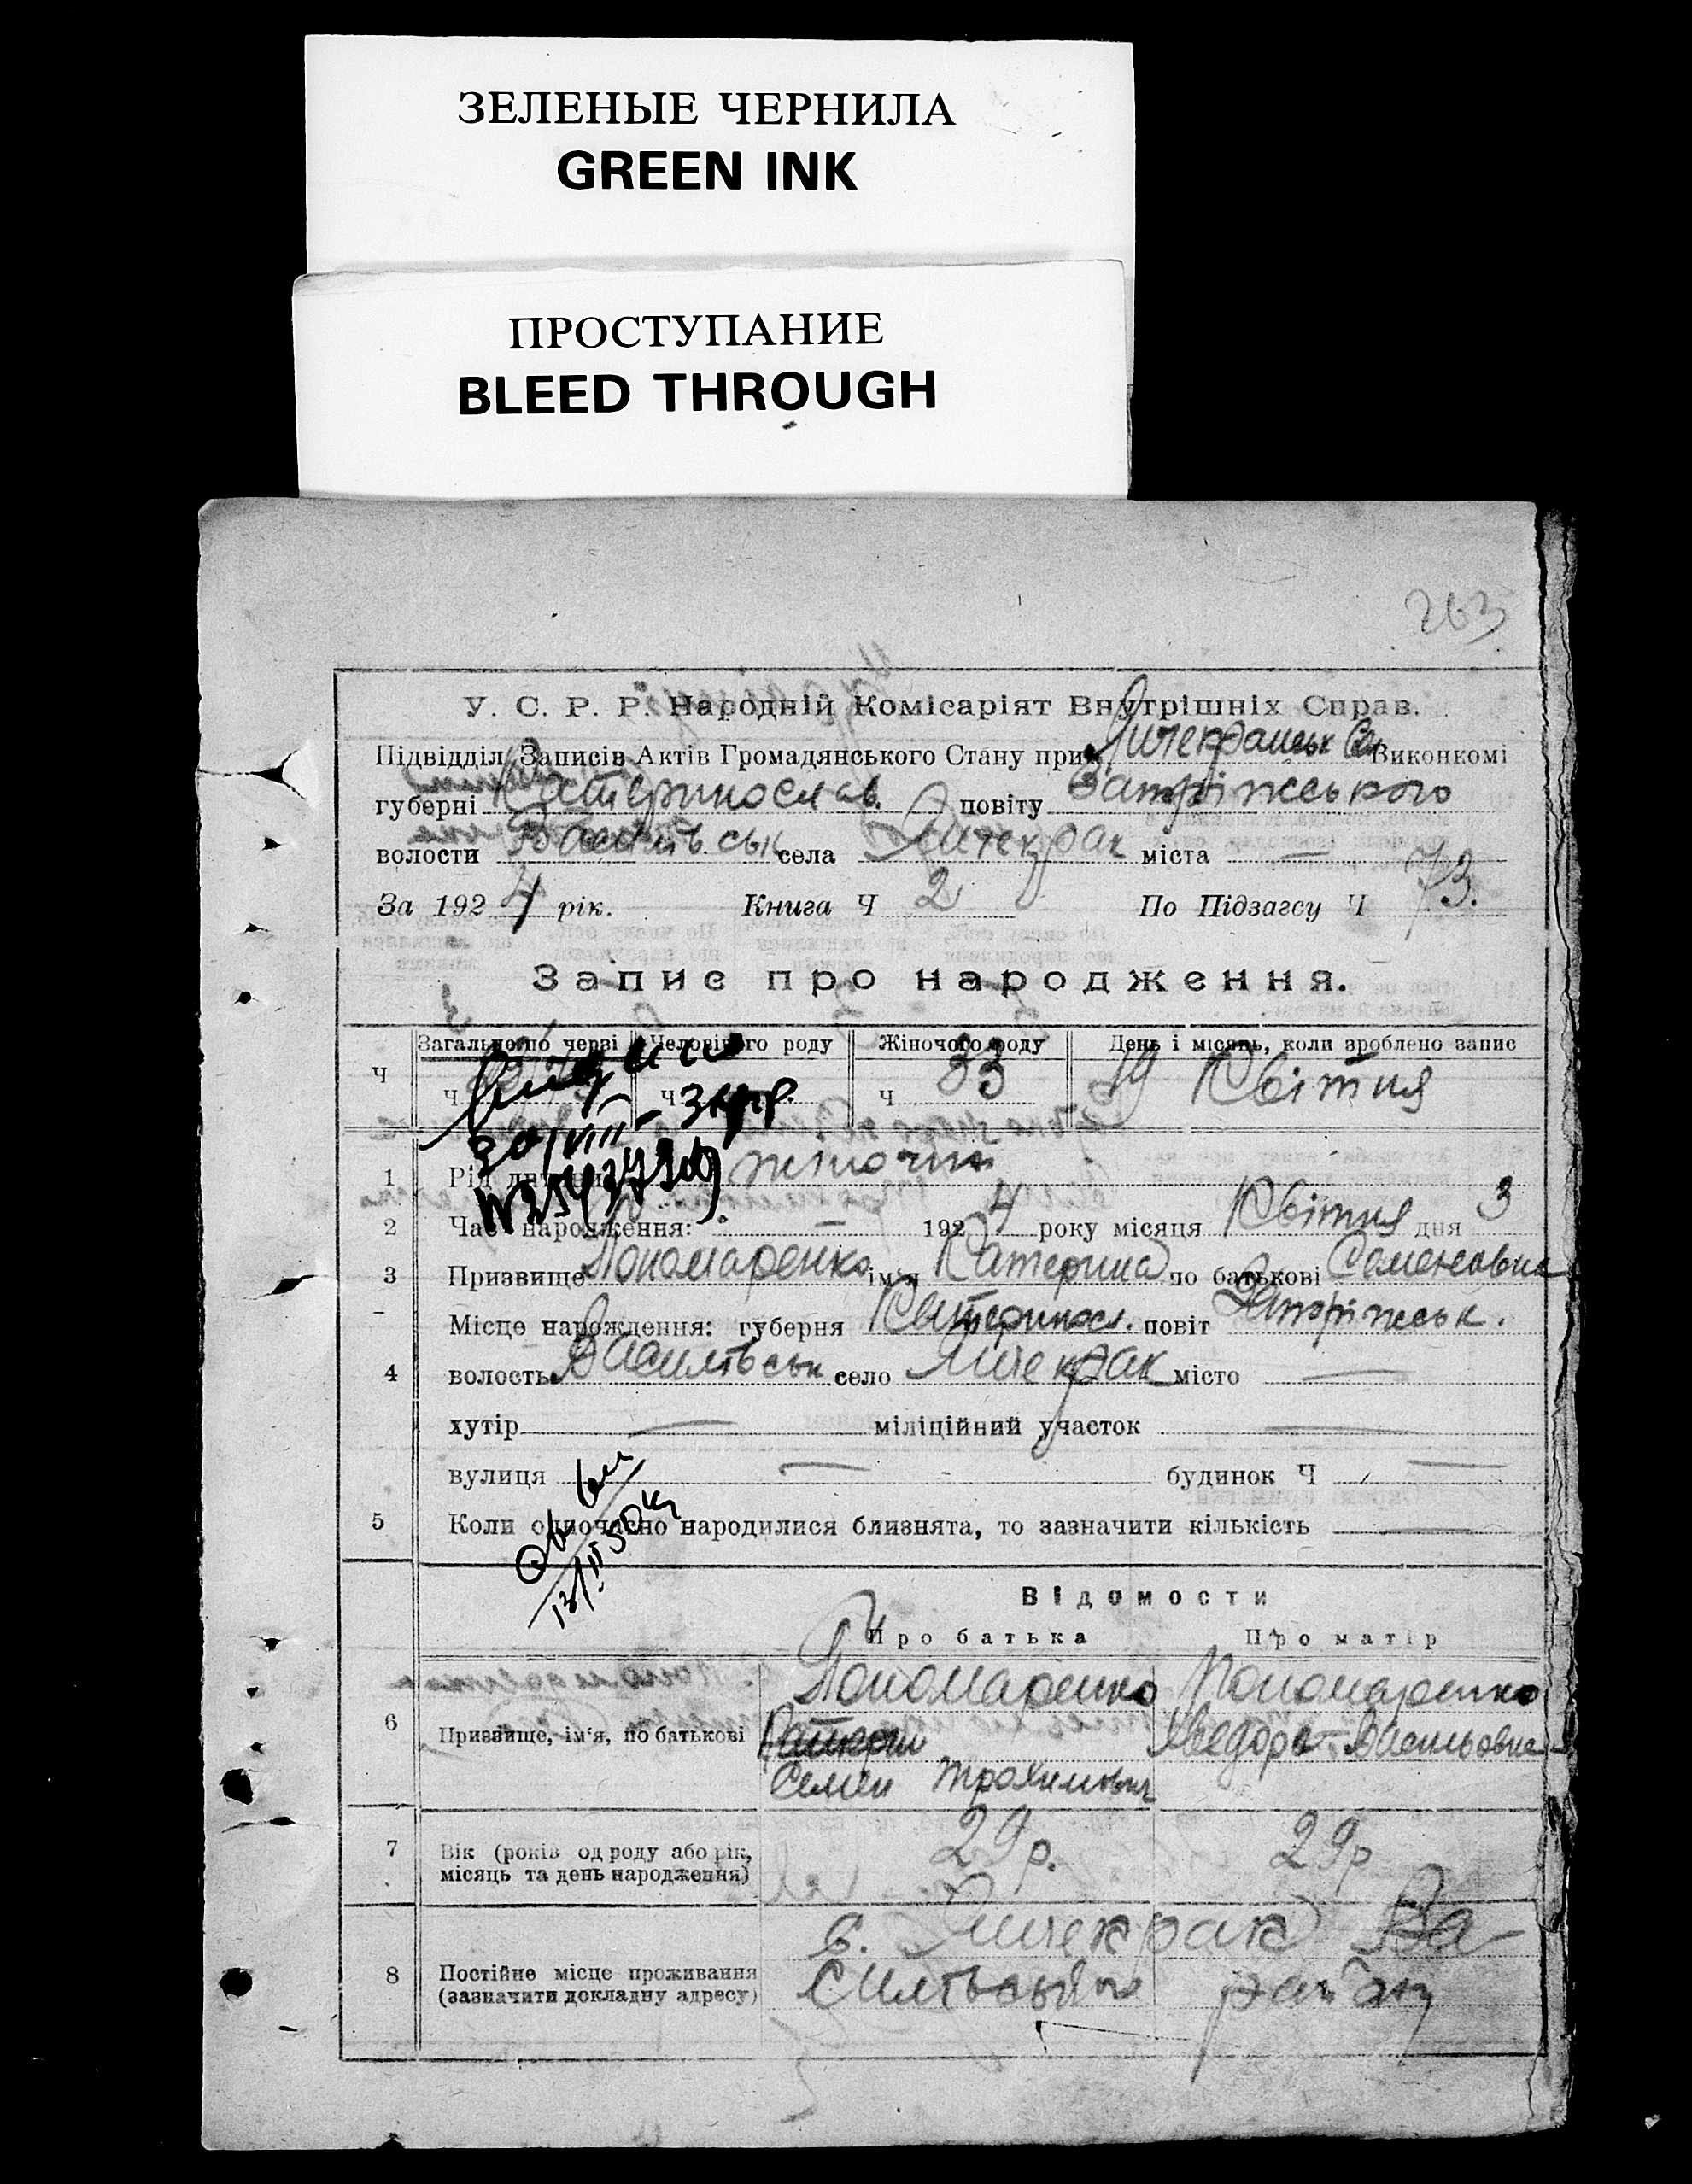 ЗЕЛЕНЫЕ ЧЕРНИЛА
GREEN INK
ПРОСТУПАНИЕ
BLEED THROUGH
263
У. С. Р. Р. Народній Комісаріят Внутрішніх Справ.
Підвідділ Записів Актів Громадянського Стану при Янчекрацьк Виконкомі
губерні Катеринослав. повіту Запоріжського
волости Василівськ села Янчекрак міста —
За 1924 рік. Книга Ч 2 По Підзагсу Ч 73.
Запис про народження.
Ч Загальне по черві Человічого роду Жіночого роду День і місяць, коли зроблено запис
Ч 73 Ч Ч 33 19 Квітня
1 Рід дитини жіночий
2 Час народження: — 1924 року місяця Квітня дня 3
3 Призвище Пономаренко ім'я Катерина по батькові Семеновна
Місце нарождення: губерня Катеринosл. повіт Запоріжськ.
4 волость Василівськ село Янчекрак місто —
хутір — міліційний участок —
вулиця — будинок Ч —
5 Коли одночасно народилися близнята, то зазначити кількість —
13/II 50
Відомости
Про батька Про матір
Пономаренко Пономаренко
6 Призвище, ім'я, по батькові Хведора Васильовна
Семен Трохимович
7 Вік (років од роду або рік, місяць та день народження) 29 р. 29 р
с. Янчекрак Ва-
8 Постійне місце проживання (зазначити докладну адресу) силівськ району